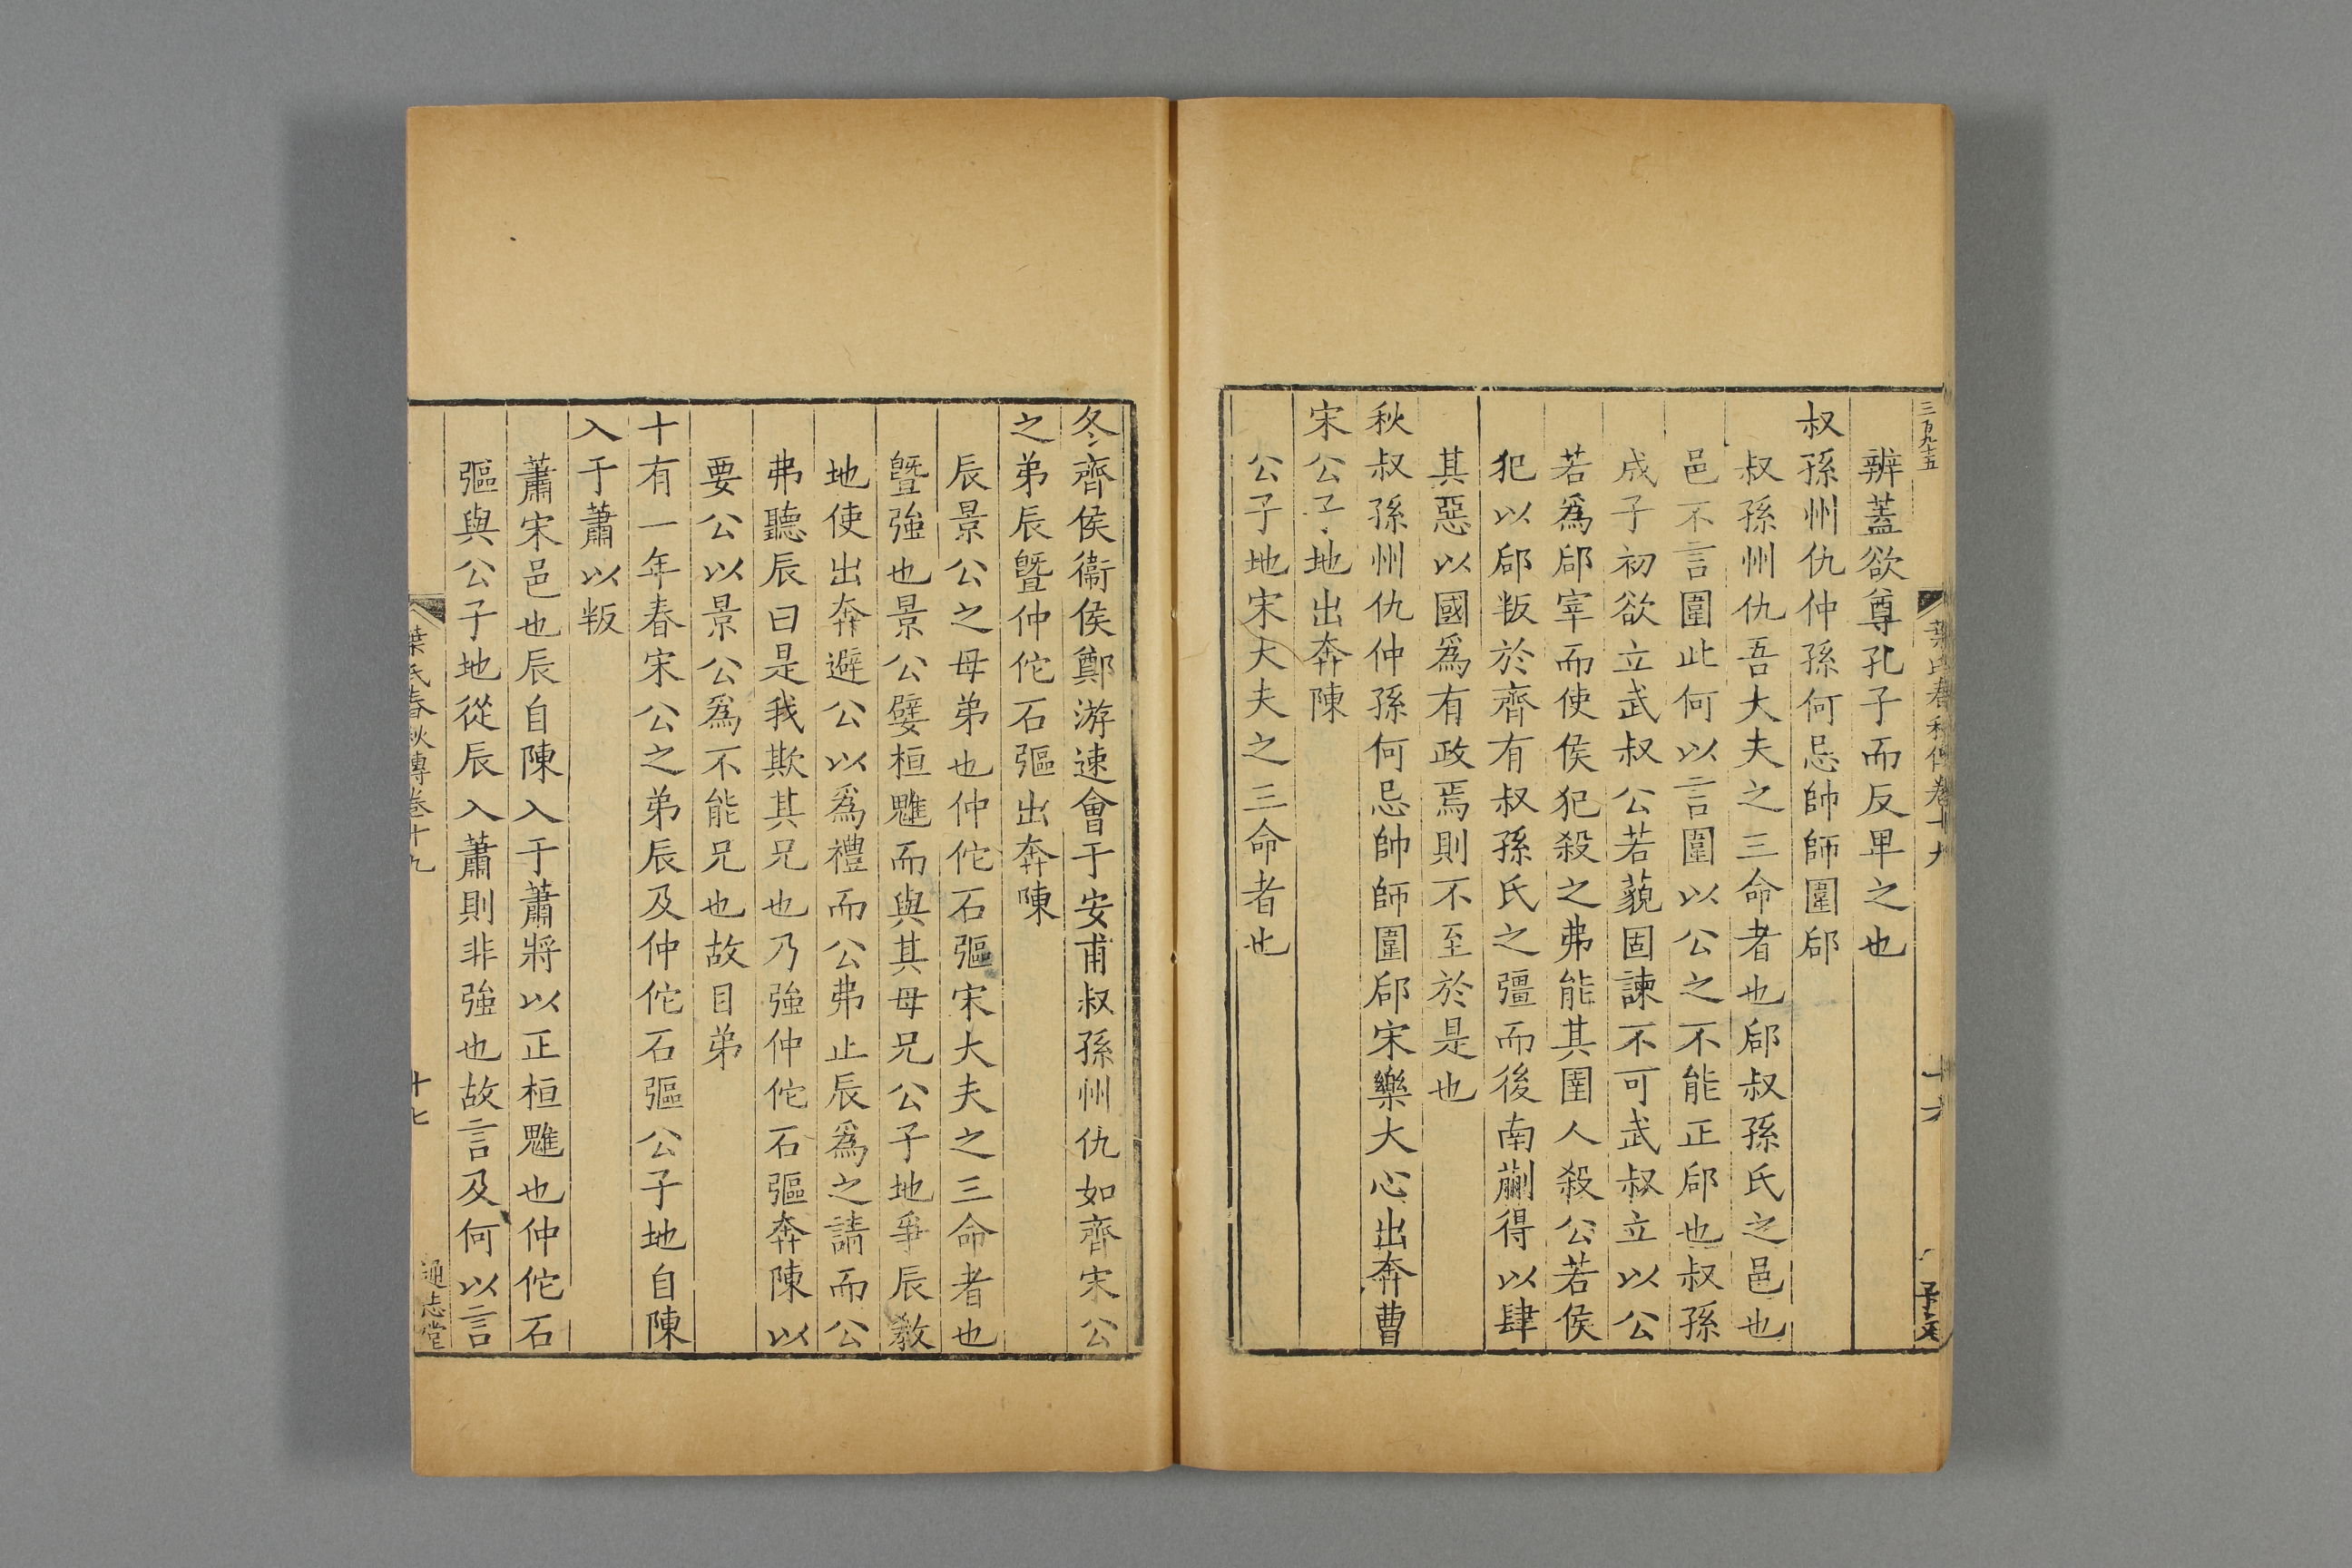 三百九十五
葉氏春秋傳卷十九
十六
辨蓋欲尊孔子而反卑之也
叔孫州仇仲孫何忌帥師圍郈
叔孫州仇吾大夫之三命者也郈叔孫氏之邑也
邑不言圍此何以言圍以公之不能正郈也叔孫
成子初欲立武叔公若藐固諫不可武叔立以公
若爲郈宰而使侯犯殺之弗能其圉人殺公若侯
犯以郈叛於齊有叔孫氏之彊而後南蒯得以肆
其惡以國爲有政焉則不至於是也
秋叔孫州仇仲孫何忌帥師圍郈宋樂大心出奔曹
宋公子地出奔陳
公子地宋大夫之三命者也
冬齊侯衞侯鄭游速會于安甫叔孫州仇如齊宋公
之弟辰曁仲佗石彄出奔陳
辰景公之母弟也仲佗石彄宋大夫之三命者也
曁強也景公嬖桓魋而與其母兄公子地爭辰敎
地使出奔避公以爲禮而公弗止辰爲之請而公
弗聽辰曰是我欺其兄也乃強仲佗石彄奔陳以
要公以景公爲不能兄也故目弟
十有一年春宋公之弟辰及仲佗石彄公子地自陳
入于蕭以叛
蕭宋邑也辰自陳入于蕭將以正桓魋也仲佗石
彄與公子地從辰入蕭則非強也故言及何以言
葉氏春秋傳卷十九
十七
通志堂